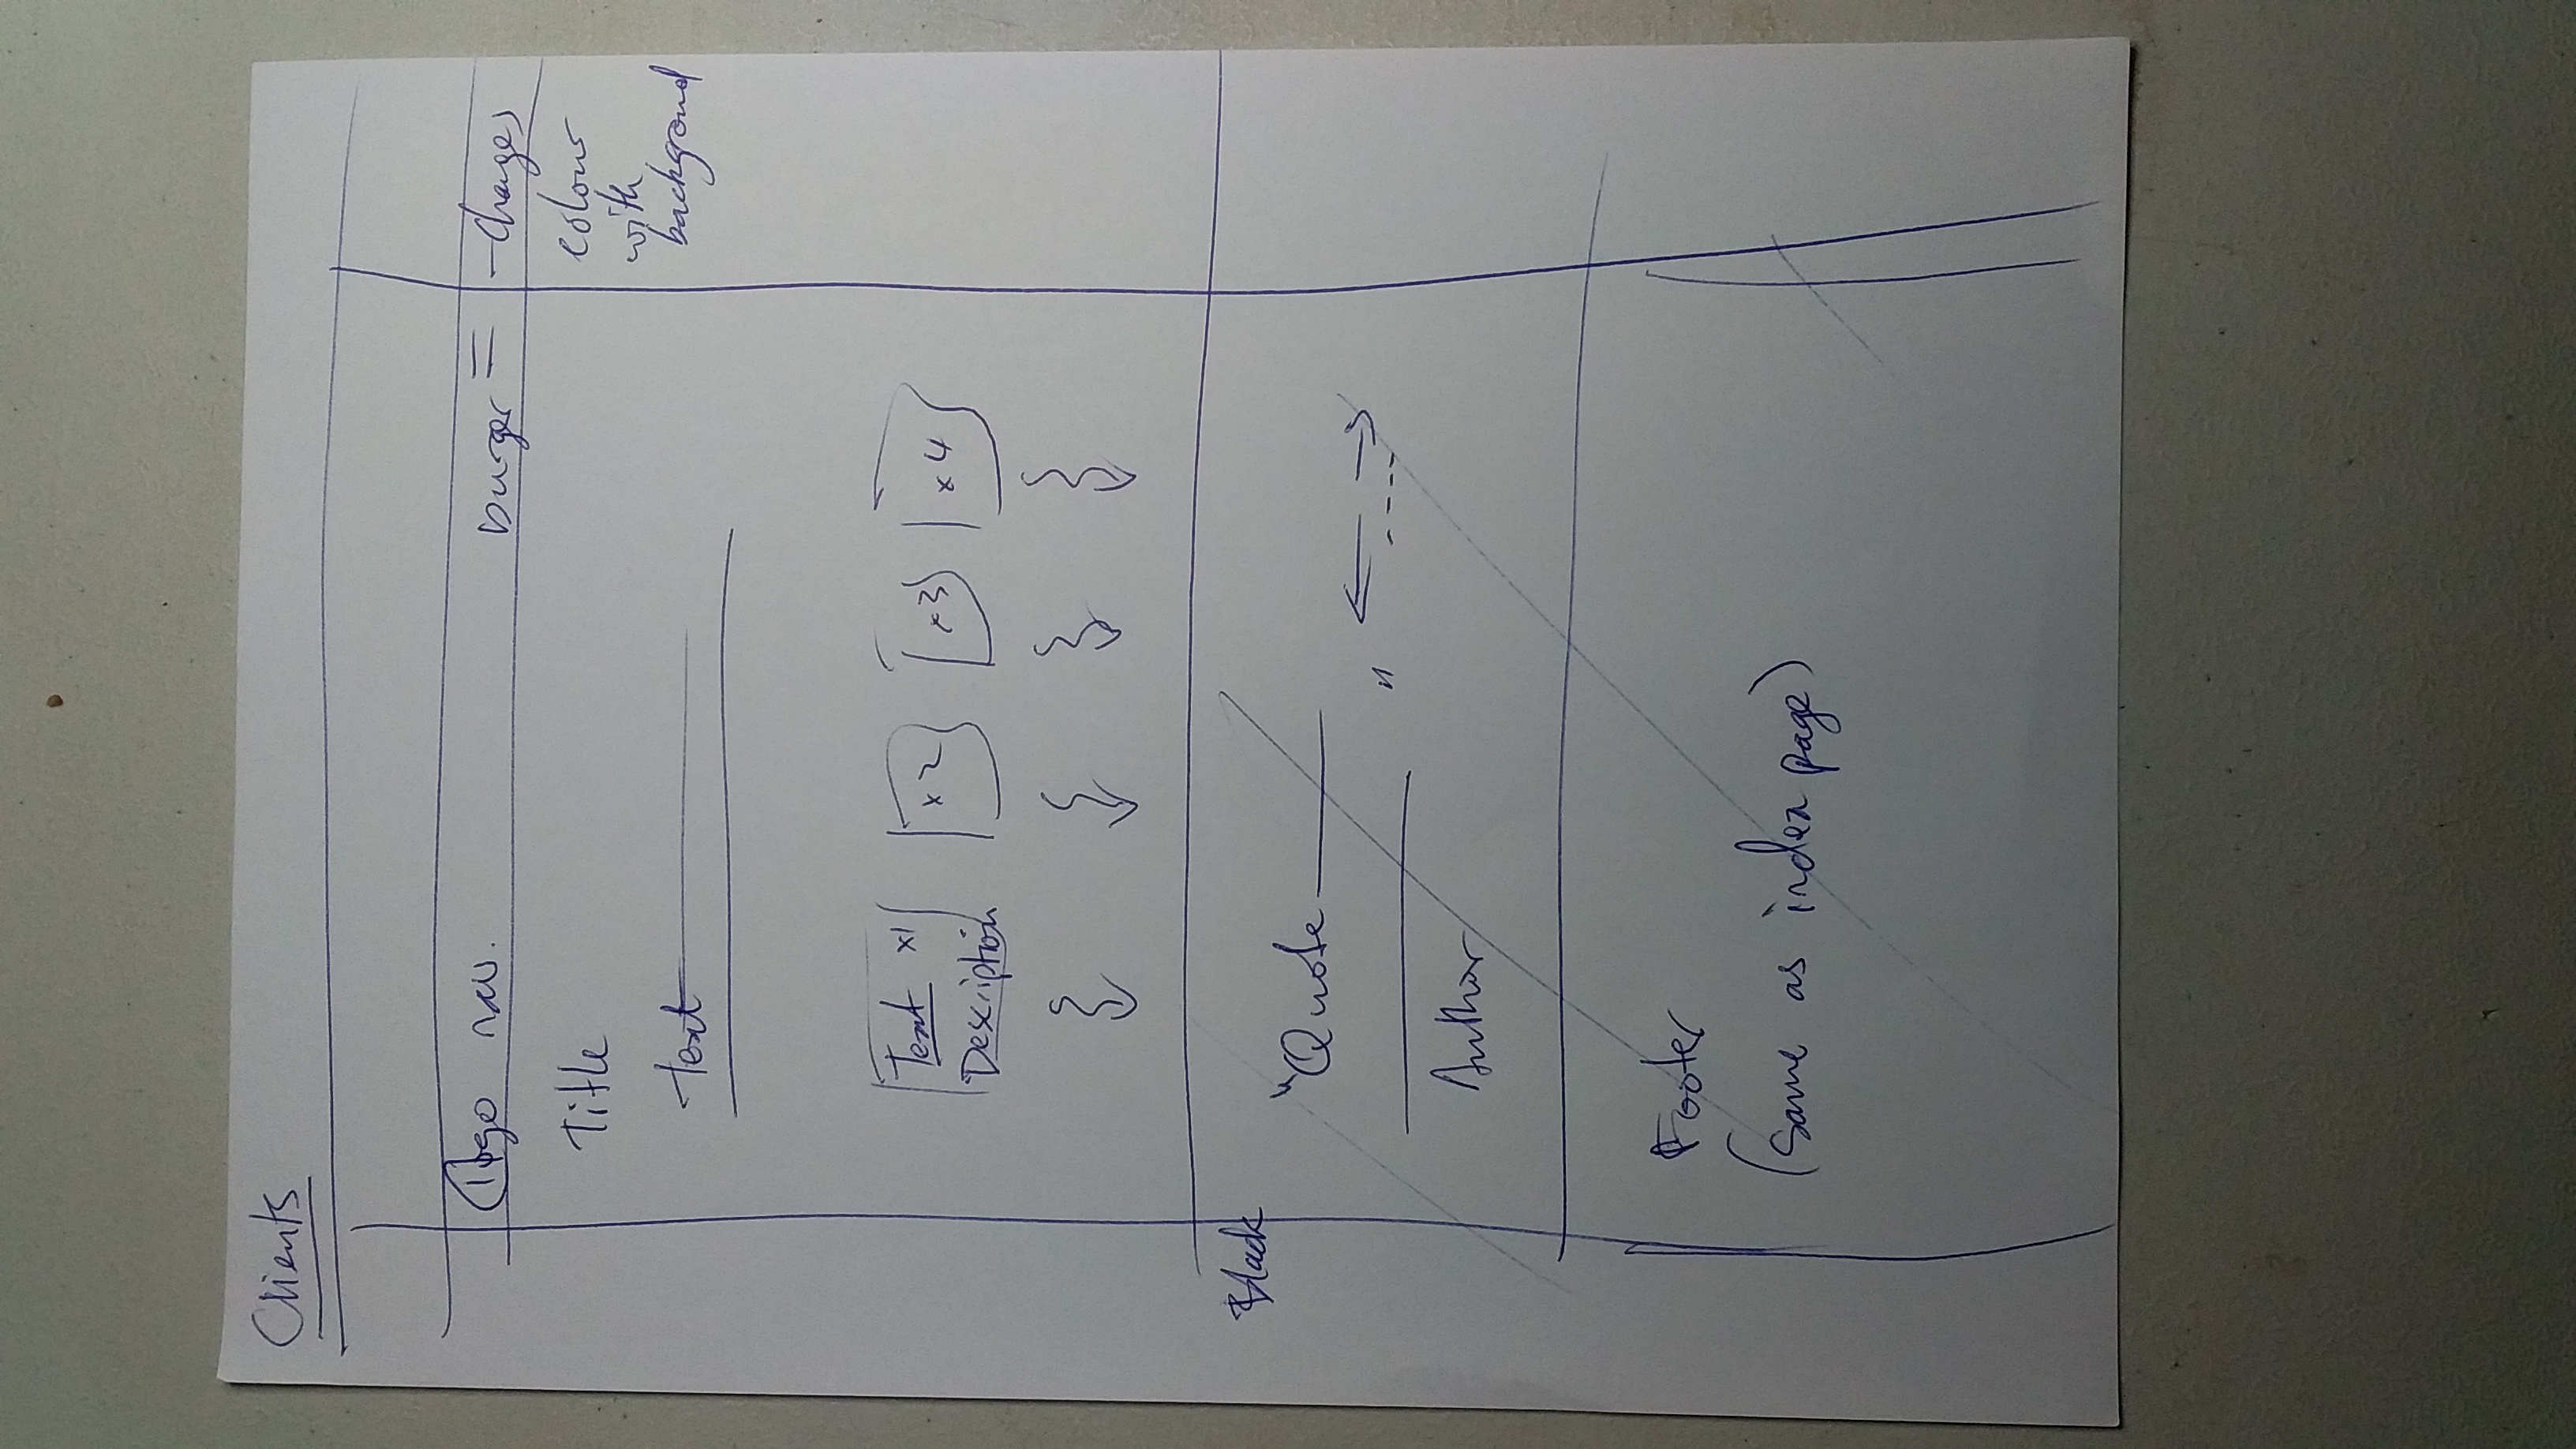 Clients
Logo nav. burger = - changes
colour
with
background
Title
Text
Text x1
Description
x2
x3
x4
Black
"Quote
"
Author
Footer
(same as index page)